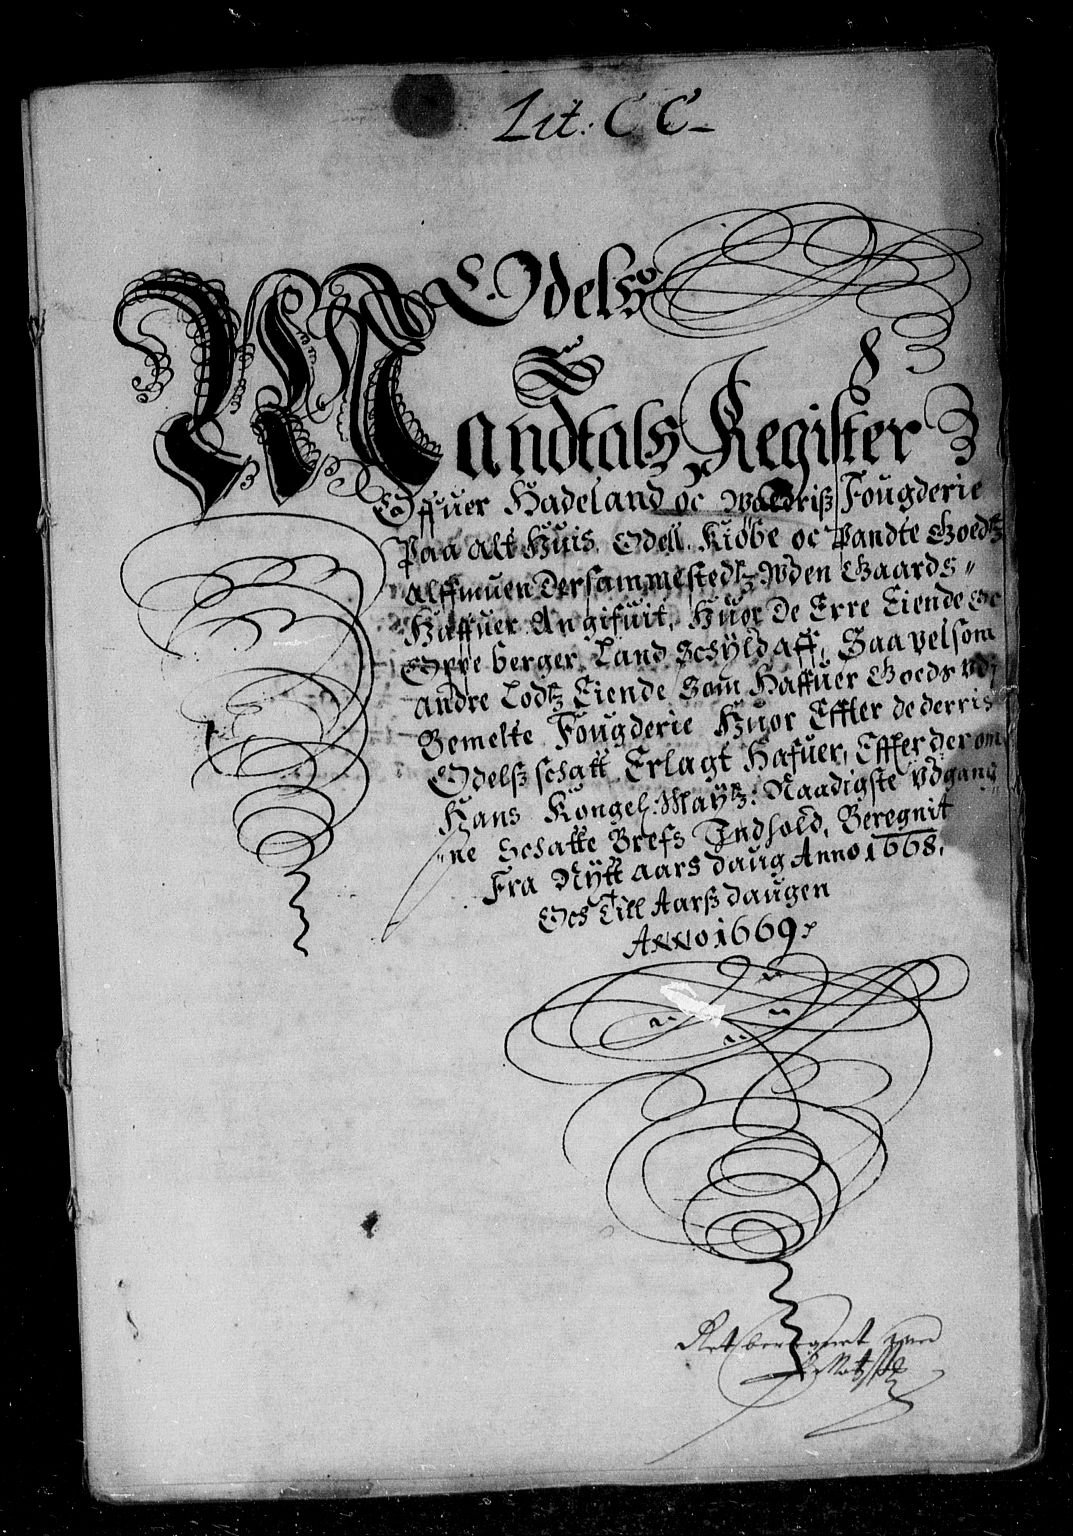 Lit. C C.
Odels
Mandtals Register
Offuer Hadeland oc Waldriß Fougderie
Paa alt Huis Odell. Kiøbe oc Pandte Goedtz
Alffmuen Dersammestedtz Wden Gaards-
Haffuer Angifuit, Huor De Erre Eiende Oc
Oppe berger, Land Schyld Aff, Saa velsom
andre Lodtz Eiende Som Haffuer Goeds Vdj
Bemelte Fougderie Huor Effter de derris
Odelß schatt Erlagt Hafuer, Effter der om
Hans Kongel: Maytz: Naadigste Vdgang-
-ne Schatte Brefs Indhold, Beregnit
Fra Nytt aars Daug Anno 1668.
Och Till Aarß Daugen
Anno 1669